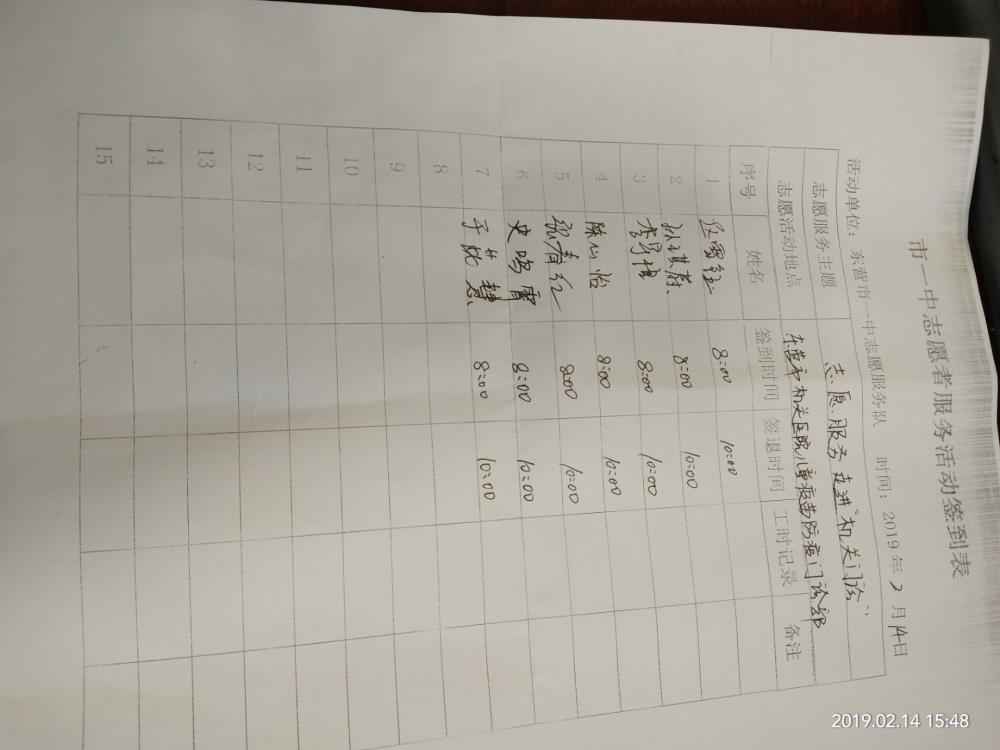 市一中志愿者服务活动签到表
活动单位：东营市一中志愿服务队 时间：2019年2月14日
志愿服务主题 志愿服务走进“机关门诊”
志愿活动地点 东营市机关医院儿童疫苗防疫门诊部
序号 姓名 签到时间 签退时间 工时记录 备注
1 8:00 10:00
2 8:00 10:00
3 8:00 10:00
4 陈心怡 8:00 10:00
5 8:00 10:00
6 史鸣霄 8:00 10:00
7 8:00 10:00
8
9
10
11
12
13
14
15
2019.02.14 15:48